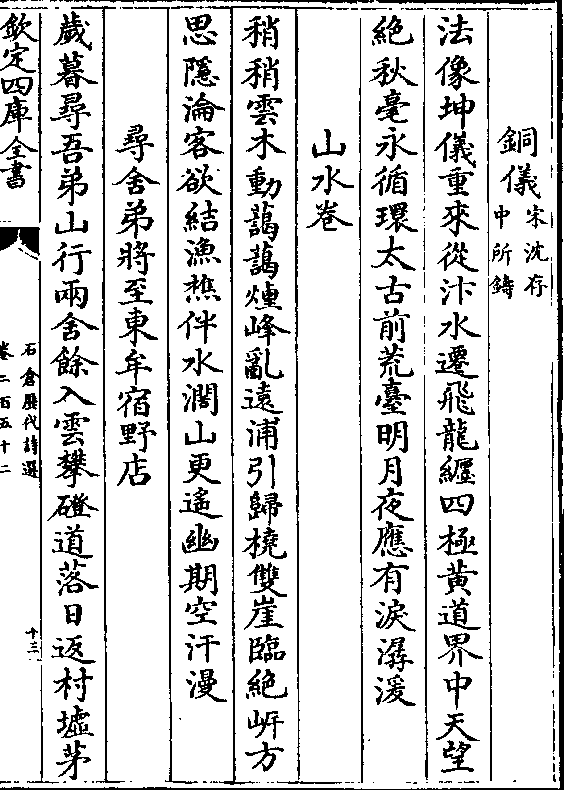 銅儀宋沈存中所鑄
法像坤儀重來從汴水遷飛龍纏四極黄道界中天望
絶秋毫永循環太古前荒臺明月夜應有淚潺湲
山水卷
稍稍雲木動藹藹煙峰亂遠浦引歸橈雙崖臨絶岍方
思隱淪客欲結漁樵伴水濶山更遙幽期空汗漫
尋舍弟將至東牟宿野店
歲暮尋吾弟山行兩舍餘入雲攀磴道落日返村墟茅
欽定四庫全書
石倉歷代詩選
卷二百五十二
十三